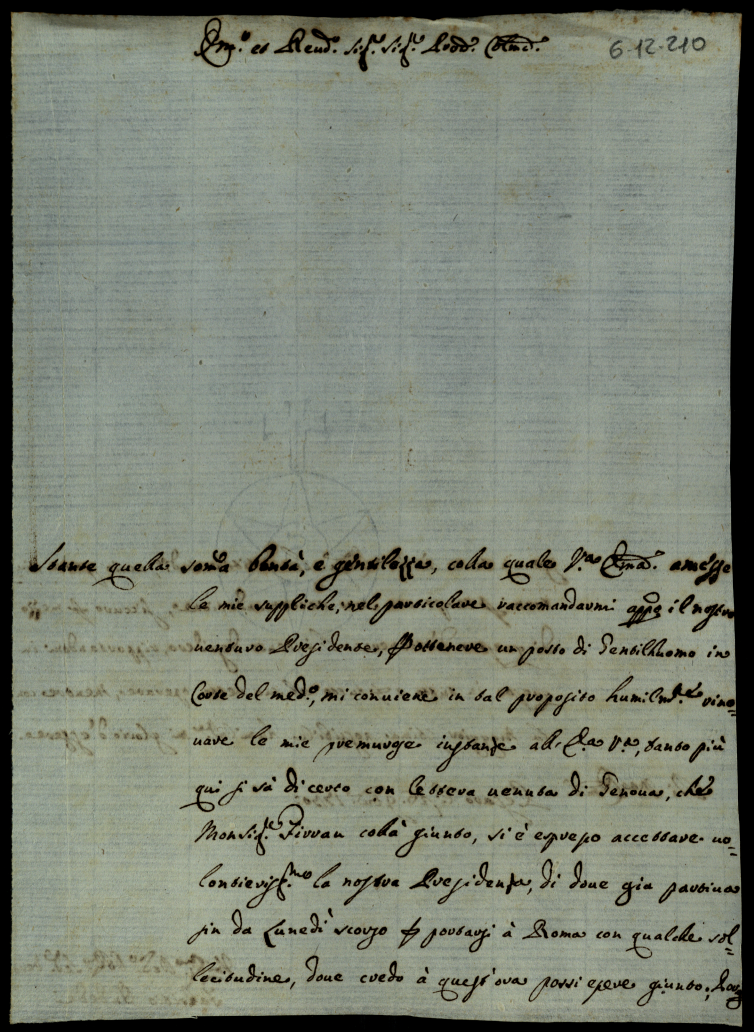 Em.º et Reud.º Sig.r Sig.r Prõn. Colmõ.
6-12-210
Stante quella som̃a bontà, e gentilezza, colla quale V.ra Em̃a. amesse
le mie suppliche, nel particolare raccomandarmi appõ il nostro
uenturo Presidente, p ottenere un posto di Gentilhuomo in
Corte del med.º, mi conuiene in tal proposito humilm.te rino=
uare le mie premurose instanze all' E.a V.ra, tanto più
qui si sà di certo con lettera uenuta di Genoua, che
Monsig.re Firrau colà giunto, si è espresso accettare uo=
lontieriss.mo la nostra Presidenza, di doue gia partiua
sin da Lunedì scorso p portarsi à Roma con qualche sol=
lecitudine, doue credo à quest'ora possi essere giunto;